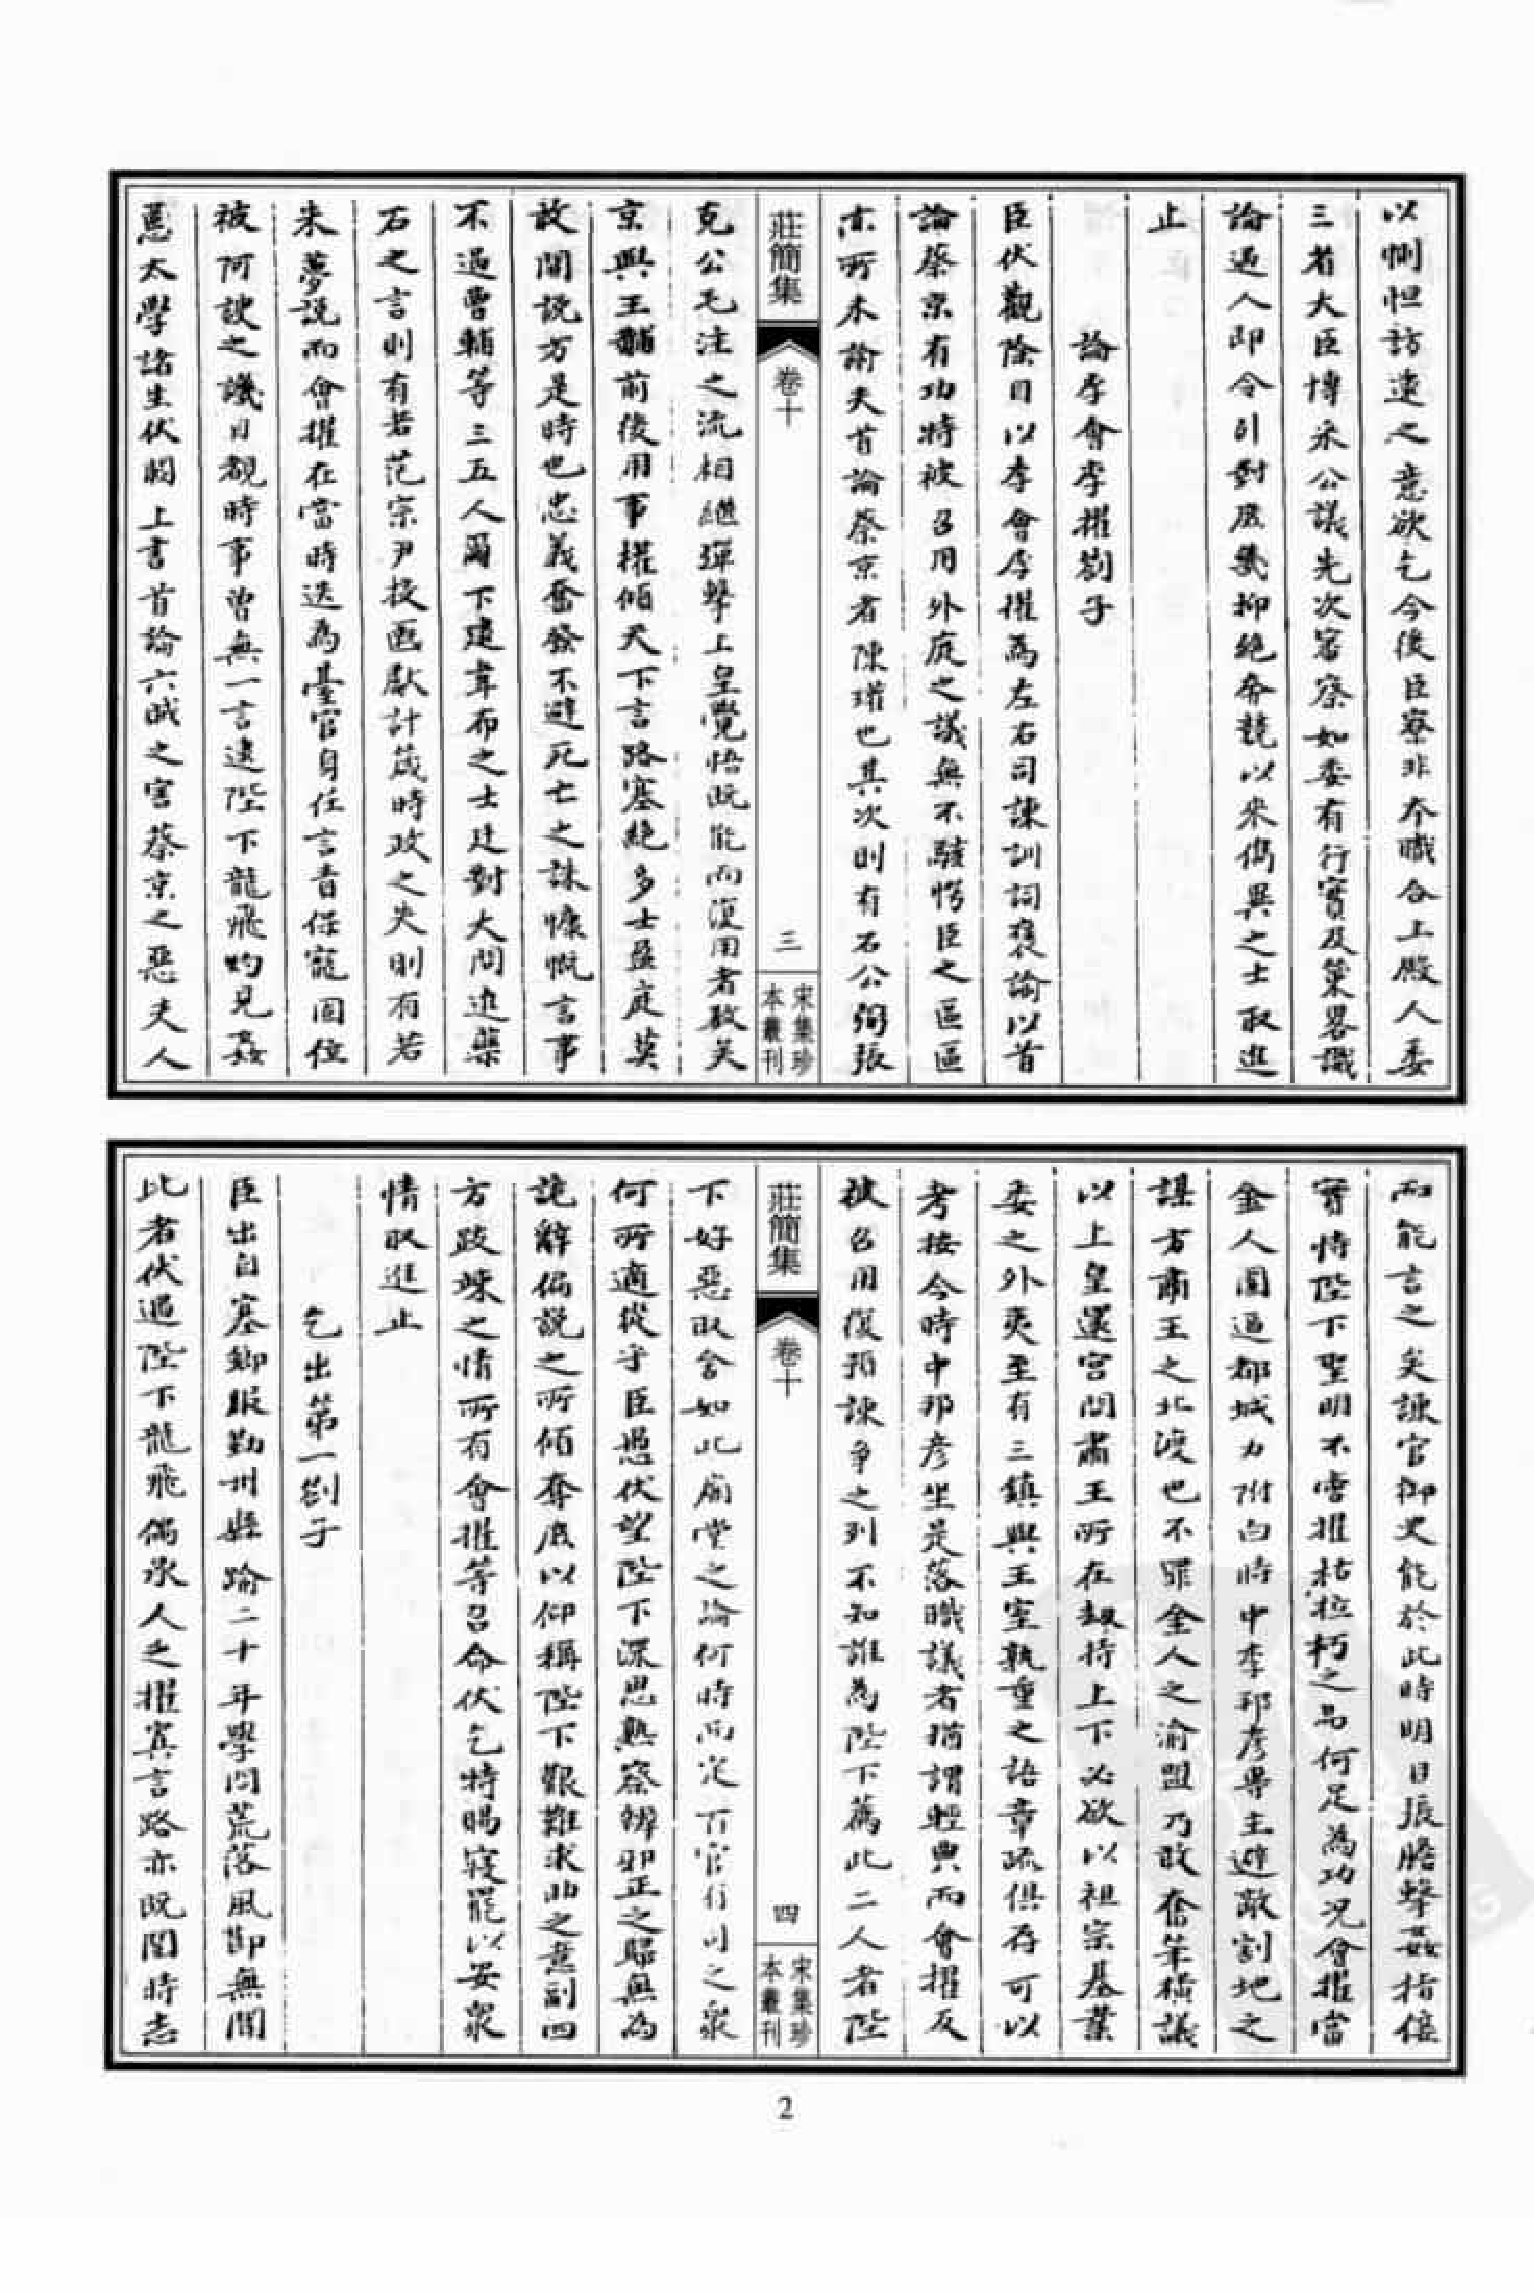 以惻怛訪逮之意欲乞今後臣寮非本職合上殿人委
三者大臣博采公議先次審察如委有行實及策畧識
論過人即令引對庶幾抑絶奔競以來儁異之士取進
止
論李會李擢劄子
臣伏觀除目以李會李擢為左右司諫訓詞褒諭以首
論蔡京有功特被召用外庭之議無不駭愕臣之區區
亦所未諭夫首論蔡京者陳瓘也其次則有石公弼張
莊簡集
卷十
三
宋集珍本叢刊
克公毛注之流相繼彈擊上皇覺悟既能而復用者數矣
京與王黼前後用事權傾天下言路塞絶多士盈庭莫
敢閧說方是時也忠義奮發不避死亡之誅慷慨言事
不過曹輔等三五人爾下逮韋布之士廷對大問進藥
石之言則有若范宗尹投匭獻計箴時政之失則有若
朱夢說而會擢在當時迭為臺官身任言責保寵固位
被阿諛之譏目覩時事曾無一言逮陛下龍飛灼見姦
慝太學諸生伏闕上書首論六賊之害蔡京之惡夫人
而能言之矣諫官御史能於此時明目張膽擊姦指佞
實恃陛下聖明不啻摧枯拉朽之易何足為功況會擢當
金人圍逼都城力附白時中李邦彥專主避敵割地之
謀方肅王之北渡也不罪金人之渝盟乃敢奮筆橫議
以上皇還宮問肅王所在刼持上下必欲以祖宗基業
委之外夷至有三鎮與王室孰重之語章疏俱存可以
考按今時中邦彥坐是落職議者猶謂輕典而會擢反
被召用復預諫爭之列不知誰為陛下薦此二人者陛
莊簡集
卷十
四
宋集珍本叢刊
下好惡取舍如此廟堂之論何時而定百官有司之衆
何所適從乎臣愚伏望陛下深思熟察辨邪正之歸無為
詭辭偏說之所傾奪庶以仰稱陛下艱難求助之意副四
方跂竦之情所有會擢等召命伏乞特賜寢罷以安衆
情取進止
乞出第一劄子
臣出自寒鄉服勤州縣踰二十年學問荒落風節無聞
此者伏遇陛下龍飛偶承人乏擢寘言路亦既閱時志